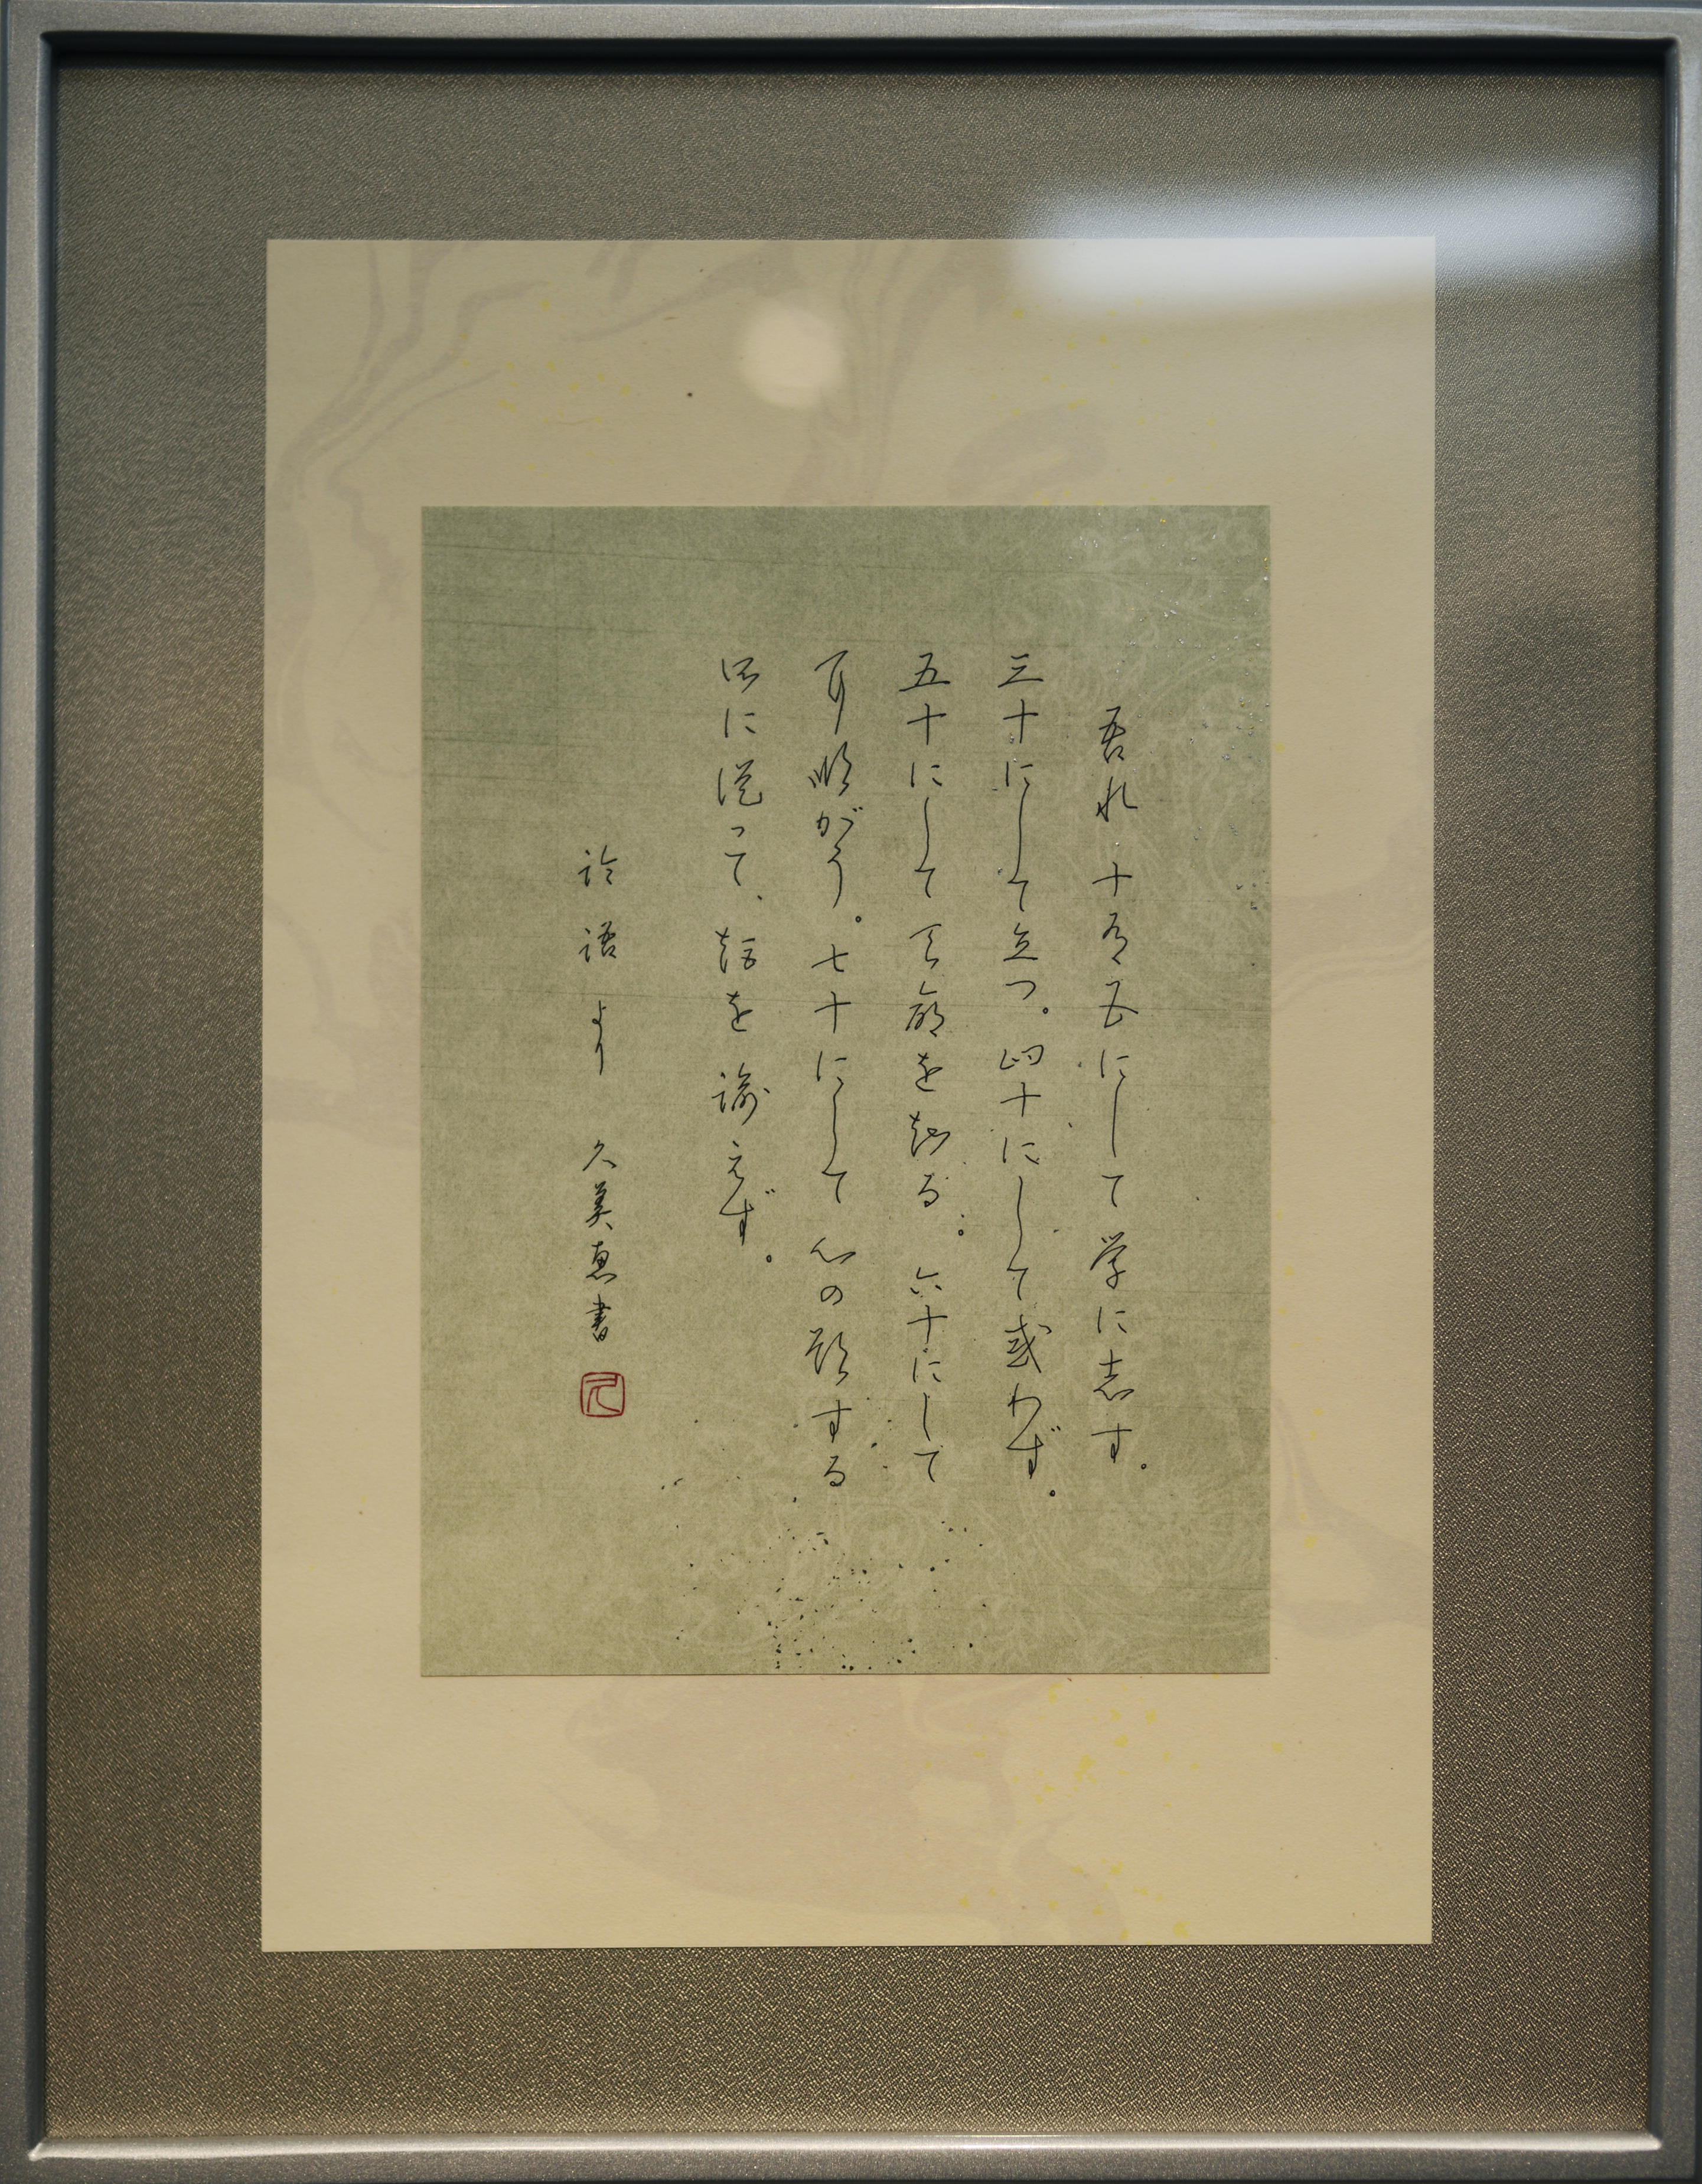 吾れ十有五にして学に志す。
三十にして立つ。四十にして惑わず。
五十にして天命を知る。六十にして
耳順がう。七十にして心の欲する
所に従って、矩を踰えず。
論語より 久美恵書